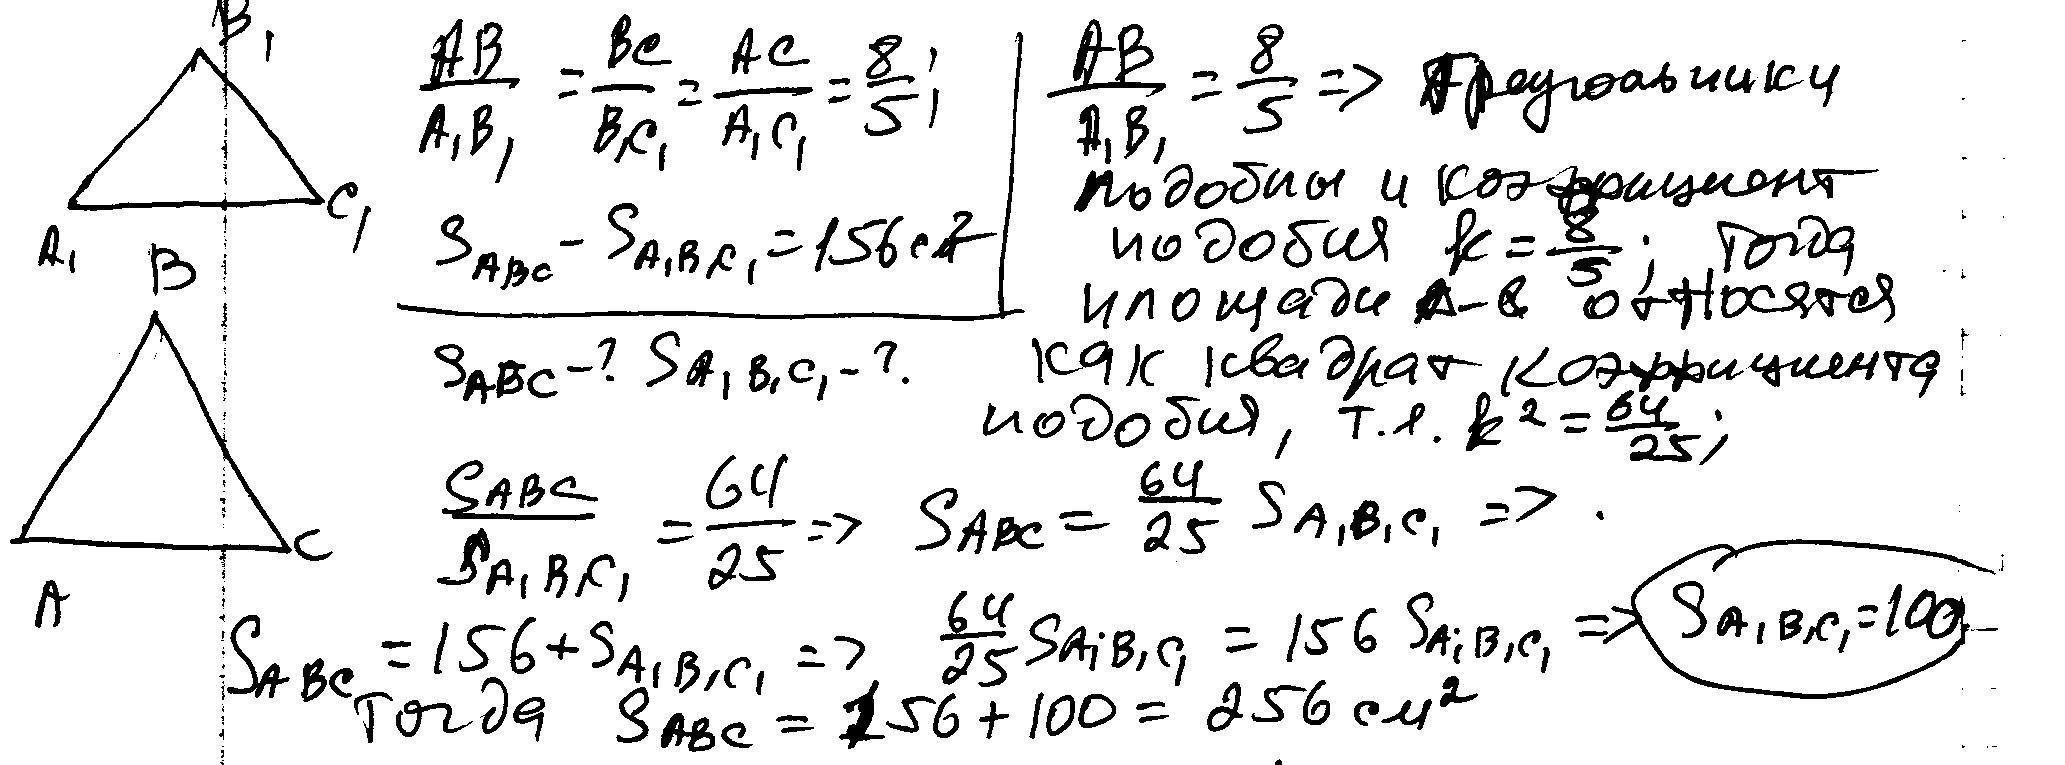 B₁
A₁
C₁
B
A
C
AB/A₁B₁ = BC/B₁C₁ = AC/A₁C₁ = 8/5;
S_ABC - S_A₁B₁C₁ = 156 см²
S_ABC - ? S_A₁B₁C₁ - ?.
AB/A₁B₁ = 8/5 => Треугольники
подобны и коэффициент
подобия k = 8/5; Тогда
площади Δ-в относятся
как квадрат коэффициента
подобия, т.е. k² = 64/25;
S_ABC/S_A₁B₁C₁ = 64/25 => S_ABC = 64/25 S_A₁B₁C₁ => .
S_ABC = 156 + S_A₁B₁C₁ => 64/25 S_A₁B₁C₁ = 156 S_A₁B₁C₁ => S_A₁B₁C₁ = 100
Тогда S_ABC = 156 + 100 = 256 см²